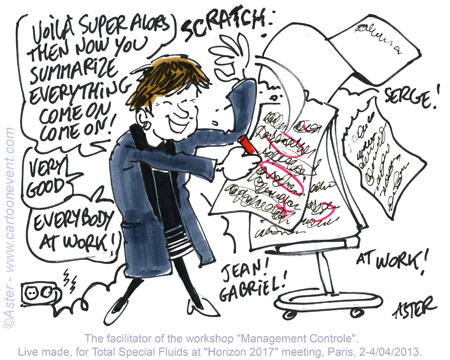 VOILÀ SUPER ALORS
THEN NOW YOU
SUMMARIZE
EVERYTHING
COME ON
COME ON!
SCRATCH!
SERGE!
VERY
GOOD
EVERYBODY
AT WORK!
JEAN!
GABRIEL!
AT WORK!
ASTER
©Aster - www.cartoonevent.com
The facilitator of the workshop "Management Controle".
Live made, for Total Special Fluids at "Horizon 2017" meeting, Paris, 2-4/04/2013.